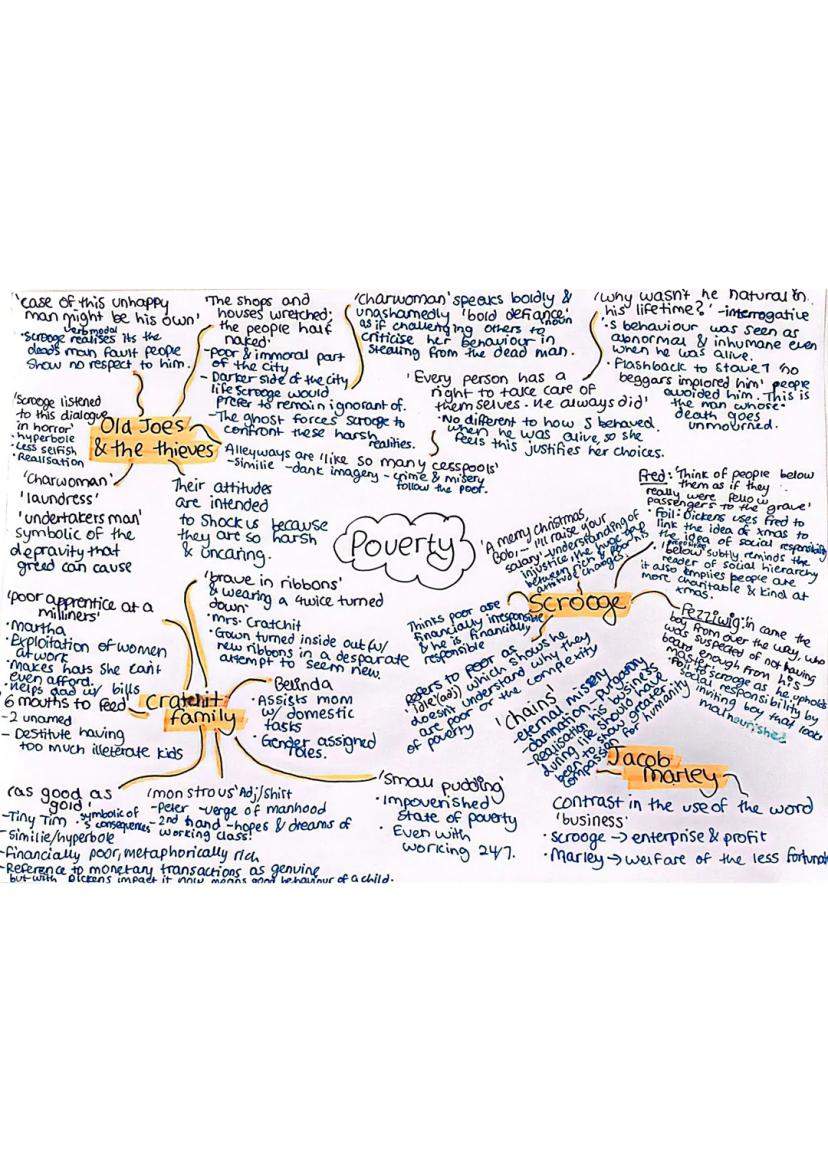 'case of this unhappy
man might be his own'
verb modal
• Scrooge realises its the
dead man fault people
show no respect to him.
'The shops and
houses wretched;
the people half
naked'
- poor & immoral part
of the city
- Darker side of the city
life Scrooge would
prefer to remain ignorant of.
- The ghost forces scrooge to
confront these harsh
realities.
'Charwoman' speaks boldly &
unashamedly 'bold defiance'
noun
as if challenging others to
criticise her behaviour in
stealing from the dead man.
'Every person has a
right to take care of
themselves. He always did'
• No different to how S behaved
when he was alive, so she
feels this justifies her choices.
'why wasn't he natural in
his lifetime?' - interrogative
• S behaviour was seen as
abnormal & inhumane even
when he was alive.
• Flashback to stave 1 'no
beggars implored him' people
avoided him. This is
the man whose
death goes
unmourned.
'Scrooge listened
to this dialogue
in horror'
• hyperbole
• Less selfish
• Realisation
Old Joes
& the thieves
Alleyways are 'like so many cesspools'
- similie - dank imagery - crime & misery
follow the poor.
'Charwoman'
'laundress'
'undertakers man'
symbolic of the
depravity that
greed can cause
Their attitudes
are intended
to shock us because
they are so harsh
& uncaring.
Poverty
'A merry christmas,
Bob' - 'I'll raise your
salary' - understanding of
injustice the huge gap
between rich & poor his
attitude changes.
Fred: 'Think of people below
them as if they
really were fellow
passengers to the grave'
• Foil: Dickens uses Fred to
link the idea of xmas to
the idea of social responsibility
preposition
• 'below' subtly reminds the
reader of social hierarchy
it also implies people are
more charitable & kind at
xmas.
Scrooge
Thinks poor are
financially irresponsible
& he is financially
responsible
Refers to poor as
'idle' (adj) which shows he
doesn't understand why they
are poor or the complexity
of poverty
Fezziwig: 'in came the
boy from over the way, who
was suspected of not having
board enough from his
master'.
• Foil to scrooge as he upholds
social responsibility by
inviting boy that looks
malnourished
'poor apprentice at a
milliners'
• Martha
• Exploitation of women
at work
• Makes hats she cant
even afford.
• Helps dad w/ bills
'brave in ribbons'
& wearing a 'twice turned
down'
• Mrs. Cratchit
• Gown turned inside out (w/
new ribbons in a desparate
attempt to seem new.
6 mouths to feed
- 2 unamed
- Destitute having
too much illeterate kids
Cratchit
family
Belinda
• Assists mom
w/ domestic
tasks
• Gender assigned
roles.
'chains'
- eternal misery
- damnation - purgatory
- Realisation his business
during life should have
been to show greater
compassion for humanity
Jacob
Marley
contrast in the use of the word
'business'
• Scrooge → enterprise & profit
• Marley → welfare of the less fortunate
'as good as
gold'
- Tiny Tim • symbolic of
• S consequences
- similie/hyperbole
- Financially poor, metaphorically rich
- Reference to monetary transactions as genuine
but with Dickens impact it now means good behaviour of a child.
'monstrous' Adj/shirt
- peter - verge of manhood
- 2nd hand - hopes & dreams of
working class.
'Small pudding'
• Impoverished
state of poverty
• Even with
working 24/7.